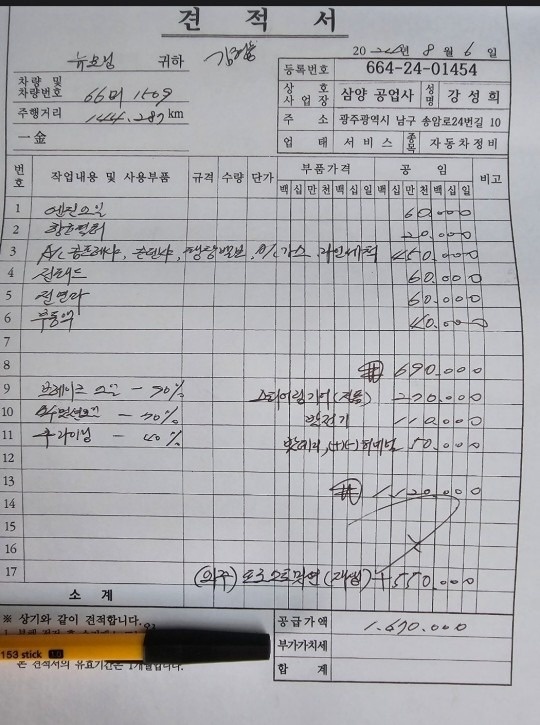 견 적 서
귀하
2024년 8월 6일
차량 및 차량번호 66머 1509
주행거리 144.287 km
一金
등록번호 664-24-01454
상호 사업장 삼양 공업사 성명 강성희
주 소 광주광역시 남구 송암로24번길 10
업 태 서비스 종목 자동차정비
번호 작업내용 및 사용부품 규격 수량 단가 부품가격 공 임 비고
백 십 만 천 백 십 일 백 십 만 천 백 십 일
1 엔진오일 60.000
2 항균필터 20.000
3 A/C 콤프레샤, 콘덴샤, 팽창밸브, A/C 가스, 라인세척 450.000
4 뒤패드 60.000
5 60.000
6 부동액 40.000
7
8 690.000
9 브레이크 오일 - 70% 스티어링기어(저음) 270.000
10 - 70% 발전기 110.000
11 후 라이닝 - 40% 밧데리, (+)(-) 터미널 50.000
12
13 1.120.000
14
15
16
17 (재생) + 550.000
소 계
※ 상기와 같이 견적합니다.
본 견적서의 유효기간은 1개월입니다.
공급가액 1.670.000
부가가치세
합 계
153 stick 1.0